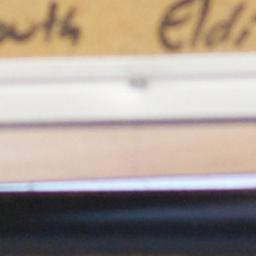 outh Eldi